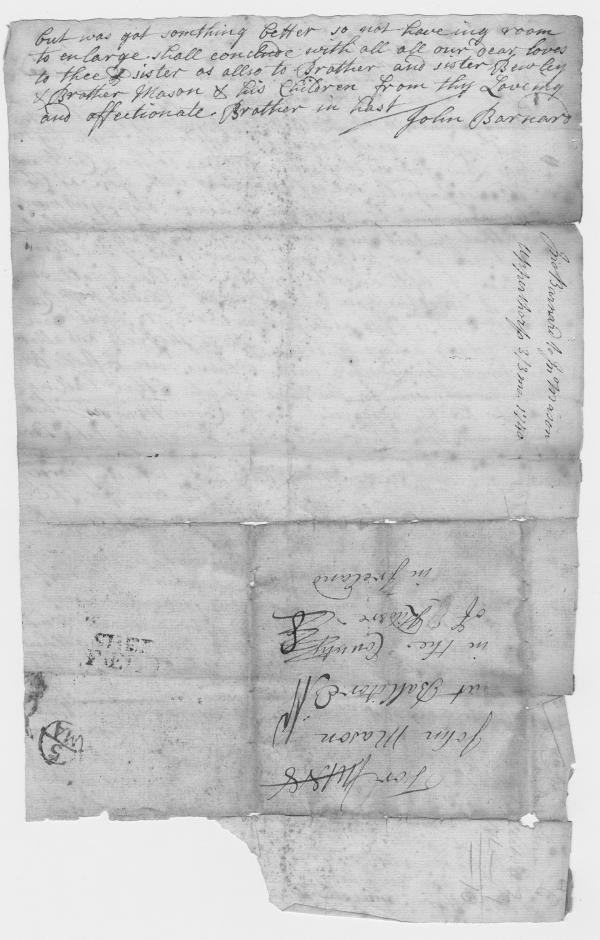 but was got somthing better so not have ing room
to enlarge shall conclude with all all our dear loves
to thee & sister as allso to Brother and sister Bewley
& Brother Mason & his Children from thy Loveing
and affectionate Brother in hast John Barnard
Jno Barnard to Jn Mason
Upperthorp 3/3mo 1740
For
John Mason
at Ballitore
in the County
of Kildare
in Ireland
5
MA